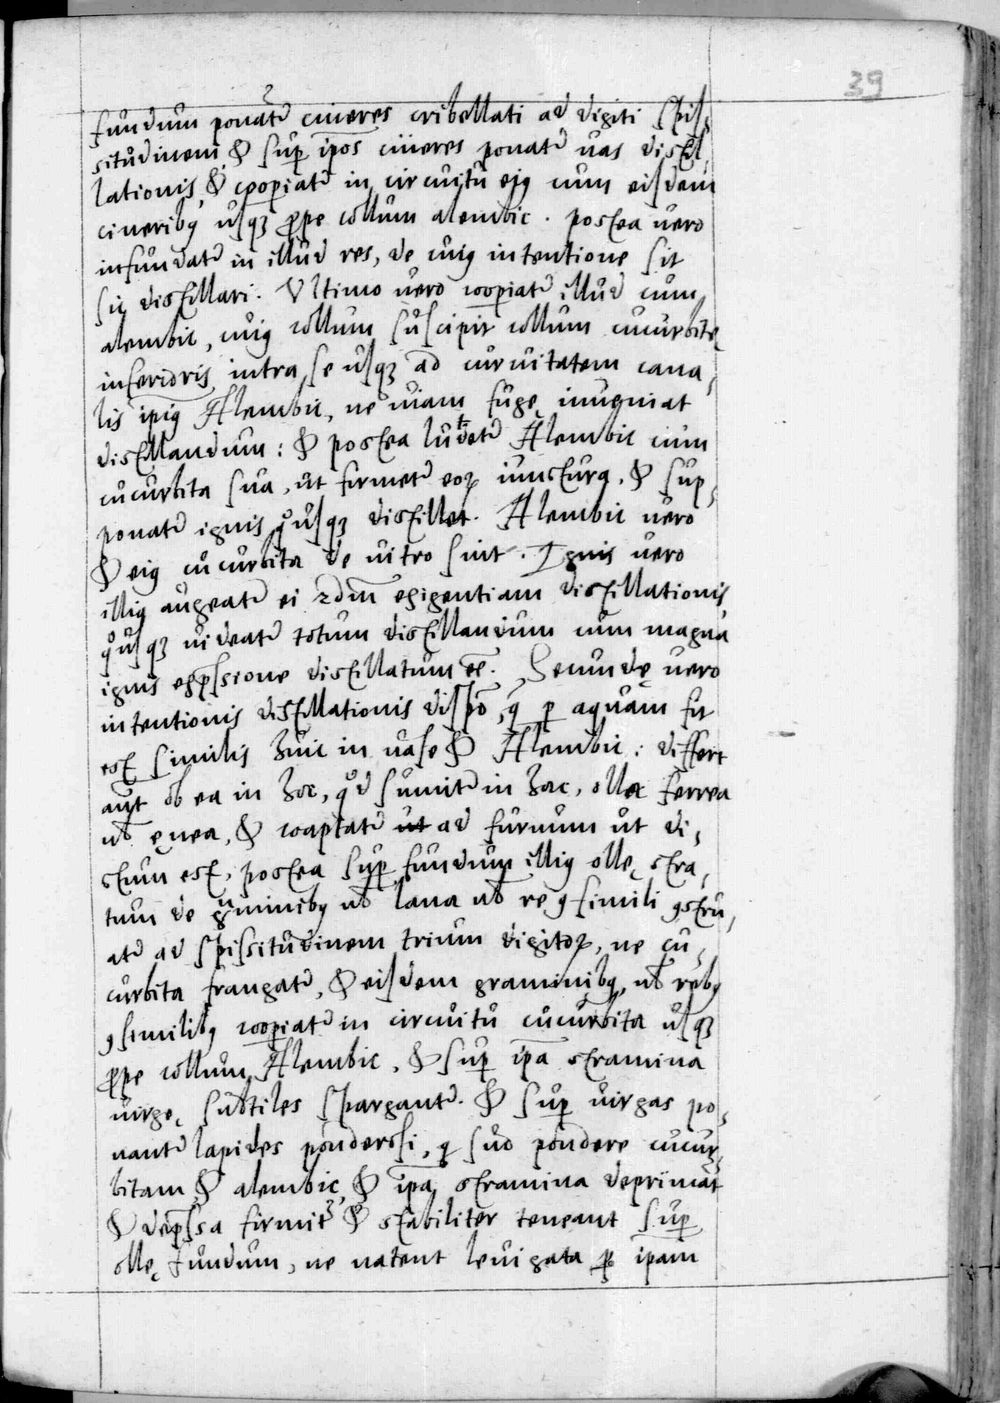 39
fundum ponat᷑ cineres cribellati ad digiti spis,
situdinem, & sup̱ ip̄os cineres ponat᷑ uas distil,
lationis, & coopiat᷑ in circuitu eiꝰ cum eisdem
cineribꝰ usqꝫ ꝓpe collum alembic. postea uero
infundat᷑ in illud res, de cuiꝰ intentione sit
sic distillari. Ultimo uero coopiat᷑ illud cum
alembic, cuiꝰ collum suscipit collum cucurbitę
inferioris intra se usqꝫ ad curuitatem cana,
lis ip̄iꝰ Alembic, ne uiam fugę inueniat
distillandum: & postea lutet᷑ Alembic cum
cucurbita sua, ut firmet᷑ eoꝝ iunctura, & sup,
ponat᷑ ignis q̊usqꝫ distillet. Alembic uero
& eiꝰ cucurbita de uitro sint. Ignis uero
illiꝰ augeat᷑ ei ẜdm̄ exigentiam distillationis,
q̊usqꝫ uideat᷑ totum distillandum cum magna
ignis exp̄ssione distillatum ee̅. Secundę uero
intentionis distillationis dispo̅, q̨ ꝑ aquam fit
est similis huic in uase & Alembic: differt
aut̅ ob ea in hoc, qd̊ sumit᷑ in hac, olla ferrea
ul̵ ęnea, & coaptat᷑ ad furnum ut di,
ctum est, postea sup̱ fundum illiꝰ ollę stra,
tum de graminibꝰ ul̵ lana ul̵ re ꝯsimili ꝯstru,
at᷑ ad spissitudinem trium digitoꝝ, ne cu,
curbita frangat᷑, & eisdem graminibꝰ, ul̵ rebꝰ
ꝯsimilibꝰ coopiat᷑ in circuitu cucurbita usqꝫ
ꝓpe collum Alembic, & sup̱ ip̄a stramina
uirgę subtiles spargant᷑. & sup̱ uirgas po,
nant᷑ lapides ponderosi, q̨ suo pondere cucur,
bitam & alembic, & ip̄a stramina deprimāt
& dep̄ssa firmit᷑ & stabiliter teneant sup̱
ollę fundum, ne natent leuigata ꝑ ipam